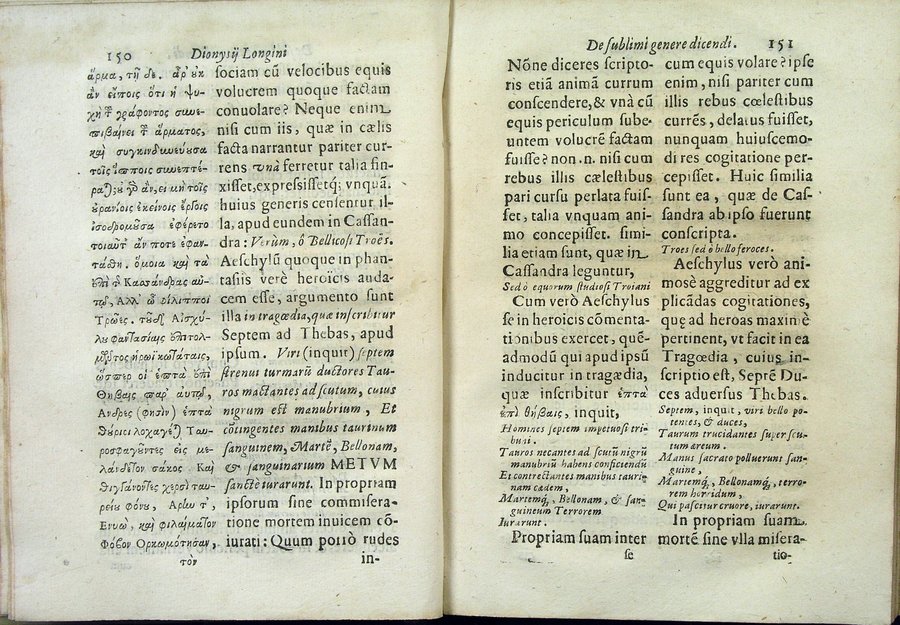 150 Dionysij Longini
ἅρμα, τῇδε. ἆρ' οὐκ
ἂν εἴποις ὅτι ἡ ψυ-
χὴ τοῦ γράφοντος συνε-
πιβαίνει τοῦ ἅρματος,
καὶ συγκινδυνεύουσα
τοῖς ἵπποις συνεπτέ-
ρωται; οὐ γὰρ ἂν, εἰ μὴ τοῖς
οὐρανίοις ἐκείνοις ἔργοις
ἰσοδρομοῦσα ἐφέρετο
τοιαῦτ' ἄν ποτε ἐφαν-
τάσθη. ὅμοια καὶ τὰ
ἐπὶ τ Κασσάνδρας αὐ-
τῷ, Ἀλλ' ὦ φίλιπποι
Τρῶες. τοῦ δ' Αἰσχύ-
λου φαντασίαις ἐπιτολ-
μῶντος ἡρωϊκωτάταις,
ὥσπερ οἱ ἑπτὰ ἐπὶ
Θήβαις παρ' αὐτῷ,
Ἄνδρες (φησὶν) ἑπτὰ
θούριοι λοχαγέται Ταυ-
ροσφαγοῦντες εἰς με-
λάνδετον σάκος Καὶ
θιγγάνοντες χερσὶ ταυ-
ρείου φόνου, Ἄρην τ',
Ἐνυὼ, καὶ φιλαίματον
Φόβον Ὁρκωμότησαν,
τὸν
sociam cū velocibus equis
volucrem quoque factam
conuolare? Neque enim
nisi cum iis, quæ in cælis
facta narrantur pariter cur-
rens vnà ferretur talia fin-
xisset, expressissetq; vnquā.
huius generis censentur il-
la, apud eundem in Cassan-
dra: Verùm, ô Bellicosi Troës.
Aeschylū quoque in phan-
tasiis verè heroïcis auda-
cem esse, argumento sunt
illa in tragœdia, quæ inscribitur
Septem ad Thebas, apud
ipsum. Viri (inquit) septem
strenui turmarū ductores Tau-
ros mactantes ad scutum, cuius
nigrum est manubrium, Et
cōtingentes manibus taurinum
sanguinem, Martē, Bellonam,
& sanguinarium METVM
sanctè iurarunt. In propriam
ipsorum sine commisera-
tione mortem inuicem cō-
iurati: Quum porrò rudes
in-
De sublimi genere dicendi. 151
Nōne diceres scripto-
ris etiā animā currum
conscendere, & vnà cū
equis periculum sube-
untem volucrē factam
fuisse? non .n. nisi cum
rebus illis cælestibus
pari cursu perlata fuis-
set, talia vnquam ani-
mo concepisset. simi-
lia etiam sunt, quæ in
Cassandra leguntur,
Sed ô equorum studiosi Troiani
Cum verò Aeschylus
se in heroicis cōmenta-
tionibus exercet, quē-
admodū qui apud ipsū
inducitur in tragœdia,
quæ inscribitur ἑπτὰ
ἐπὶ θήβαις, inquit,
Homines septem impetuosi tri-
buni.
Tauros necantes ad scutū nigrū
manubriū habens conficiendū
Et contrectantes manibus tauri-
nam cædem,
Martemq́, Bellonam, & san-
guineum Terrorem
Iurarunt.
Propriam suam inter
se
cum equis volare? ipse
enim, nisi pariter cum
illis rebus cœlestibus
currēs, delatus fuisset,
nunquam huiuscemo-
di res cogitatione per-
cepisset. Huic similia
sunt ea, quæ de Cas-
sandra ab ipso fuerunt
conscripta.
Troes sed ô bello feroces.
Aeschylus verò ani-
mosè aggreditur ad ex
plicādas cogitationes,
quę ad heroas maximè
pertinent, vt facit in ea
Tragœdia, cuius in-
scriptio est, Septē Du-
ces aduersus Thebas.
Septem, inquit, viri bello po-
tentes, & duces,
Taurum trucidantes super scu-
tum æreum.
Manus sacrato polluerunt san-
guine,
Martemq́, Bellonamq́, terro-
rem horridum,
Qui pascitur cruore, iurarunt.
In propriam suam
mortē sine vlla misera-
tio-